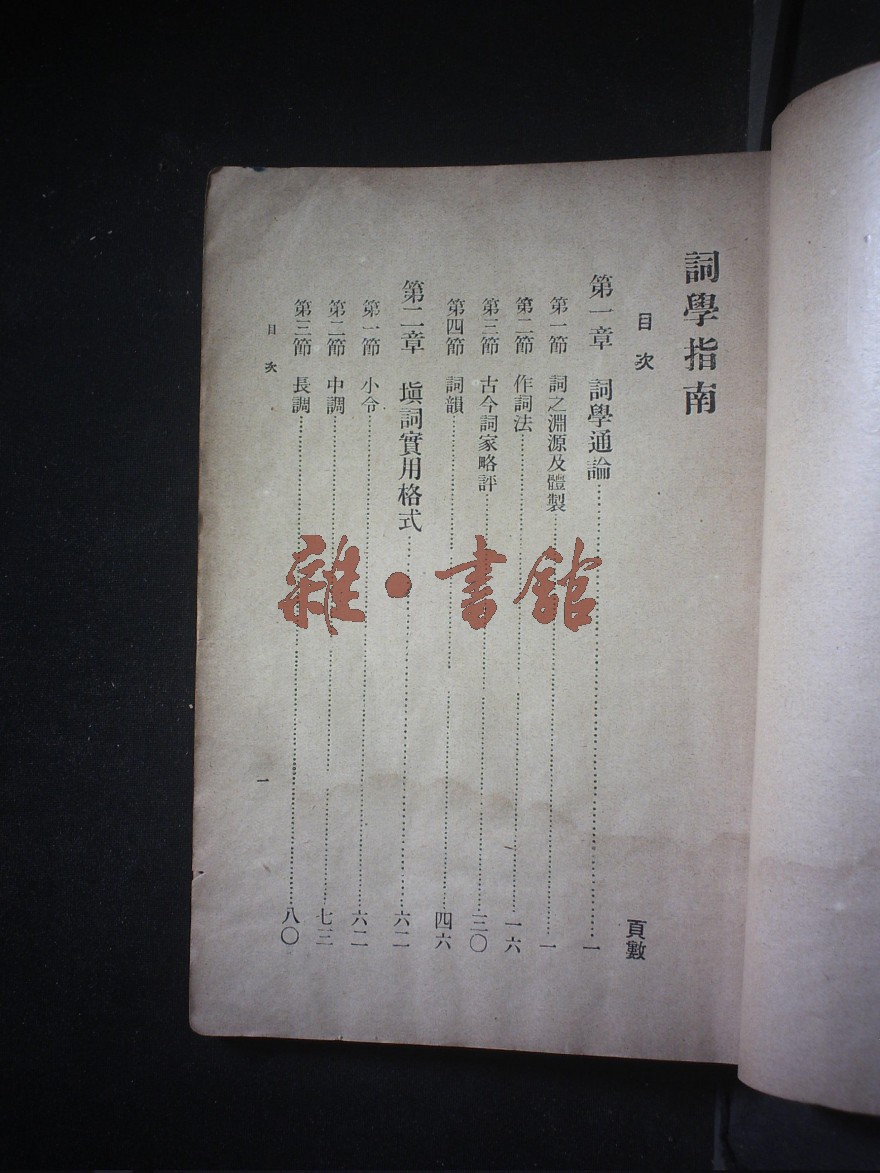 詞學指南
目次
頁數
第一章 詞學通論……一
第一節 詞之淵源及體製……一
第二節 作詞法……一六
第三節 古今詞家略評……三〇
第四節 詞韻……四六
第二章 塡詞實用格式……六二
第一節 小令……六二
第二節 中調……七三
第三節 長調……八〇
目次
一
雜·書館